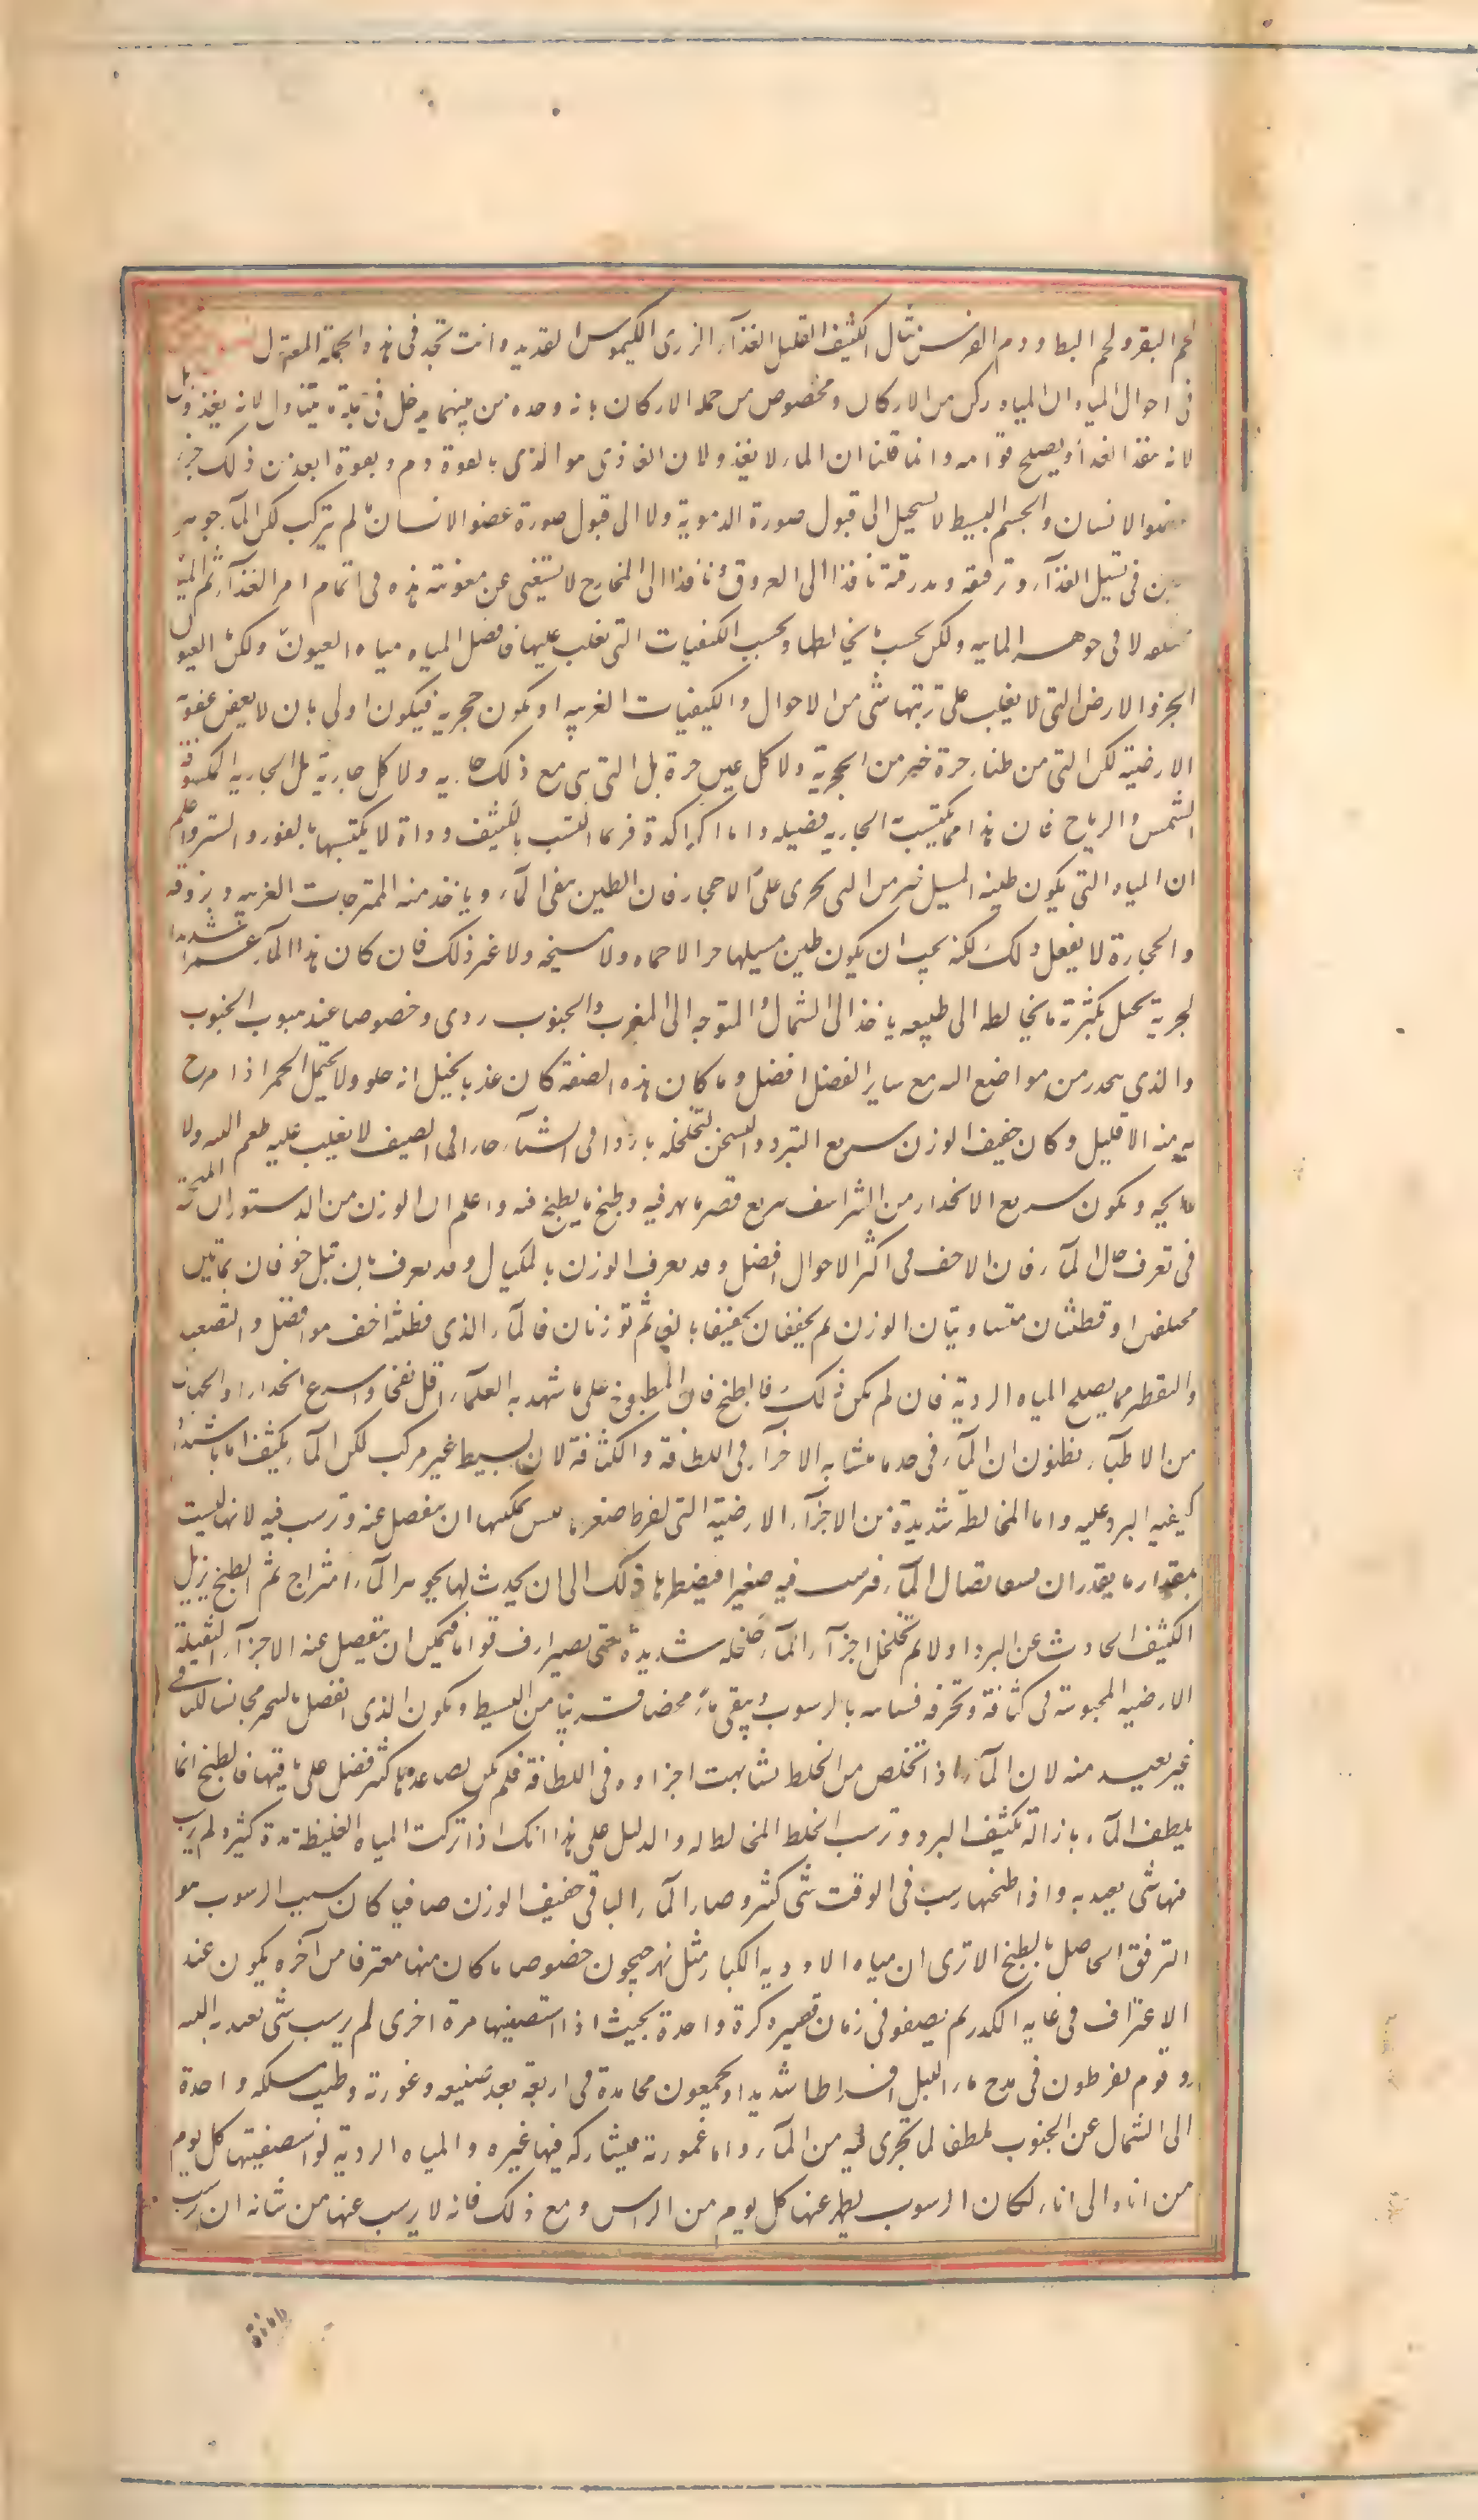 لحم البقر ولحم البط ودم الفرس مثال الكثيف القليل الغذاء الردى الكيموس القديد وانت تجد فى هذه الجملة المعتدل
فى احوال المياه ان المياه ركن من الاركان ومخصوص من جملة الاركان بانه وحده من بينها يدخل فى جملة ما يتناول لا لانه يغذو بل
لانه ينفذ الغذاء ويصلح قوامه وانما قلنا ان الماء لا يغذو لان الغاذى هو الذى بالقوة دم وبقوة ابعد من ذلك جزء
عضو الانسان والجسم البسيط لا يستحيل الى قبول صورة الدموية ولا الى قبول صورة عضو الانسان ما لم يتركب لكن الماء جوهر
يعين فى تسييل الغذاء وترقيقه وبدرقته نافذا الى العروق ونافذا الى المخارج لا يستغنى عن معونته هذه فى اتمام امر الغذاء ثم المياه
مختلفة لا فى جوهر المائية ولكن بحسب ما يخالطها وبحسب الكيفيات التى تغلب عليها فافضل المياه مياه العيون ولا كل العيون
الحرة الارض التى لا يغلب على تربتها شى من الاحوال والكيفيات الغريبة او تكون حجرية فيكون اولى بان لا يعفن عفونة
الارضية لكن التى من طينة حرة خير من الحجرية ولا كل عين حرة بل التى هى مع ذلك جارية ولا كل جارية بل الجارية المكشوفة
الشمس والرياح فان هذا مما يكتسب الجارية فضيلة واما الراكدة فربما اكتسبت بالكشف رداة لا يكتسبها بالغور والستر واعلم
ان المياه التى يكون طينة المسيل خير من التى تجرى على الاحجار فان الطين ينقى الماء وياخذ منه الممتزجات الغريبة ويروقه
والحجارة لا يفعل ذلك لكنه يجب ان يكون طين مسيلها حرا لا حماه ولا سبخة ولا غير ذلك فان كان هذا الماء غمرا شديد
الجرية تحيل بكثرته ما يخالطه الى طبيعه ياخذ الى الشمال والمتوجه الى المغرب والجنوب ردى وخصوصا عند هبوب الجنوب
والذى ينحدر من مواضع عاليه مع ساير الفضل افضل وما كان هذه الصفة كان عذبا يخيل انه حلو ولا يحتمل الخمر اذا مزج
به منه الا قليل وكان خفيف الوزن سريع التبرد والتسخن لتخلخله باردا فى الشتاء حارا فى الصيف لا يغلب عليه طعم البتة ولا
رايحة ويكون سريع الانحدار من الشراسيف سريع تهرى ما يهرى فيه وطبخ ما يطبخ فيه واعلم ان الوزن من الدستورات المنجحة
فى تعرف حال الماء فان الاخف فى اكثر الاحوال افضل وقد يعرف الوزن بالمكيال وقد يعرف بان تبل خرقتان بماءين
مختلفين او قطنتان متساويتان الوزن ثم يجففان تجفيفا بالغا ثم توزنان فالماء الذى قطنته اخف هو افضل والتصعيد
والتقطير مما يصلح المياه الردية فان لم يمكن ذلك فالطبخ فان المطبوخ على ما شهد به العلماء اقل نفخا واسرع انحدارا والجهال
من الاطباء يظنون ان الماء فى حد ما متشابه الاجزاء فى اللطافة والكثافة لانه بسيط غير مركب لكن الماء يكثف اما باشتداد
كيفية البرد عليه واما المخالطة شديدة من الاجزاء الارضية التى لفرط صغرها ليس يمكنها ان تنفصل عنه وترسب فيه لانها ليست
بمقدار ما يقدر ان تشق اتصال الماء فترسب فيه صغرا فيضطرها ذلك الى ان يحدث لها بجوهر الماء امتزاج ثم الطبخ يزيل
الكثيف الحادث عن البرد اولا ثم تخلخل اجزاء الماء خلخلة شديدة حتى يصير ارق قواما فيمكن ان تنفصل عنه الاجزاء الثقيلة
الارضية المحبوسة فى كثافته وتخرقه فتباينه بالرسوب ويبقى ماء محضا قريبا من البسيط ويكون الذى انفصل بالتبخر مجانسا للباقى
غير بعيد منه لان الماء اذا تخلص من الخلط تشابهت اجزاوه فى اللطافة فلم يكن لصاعدها كثير فضل على باقيها فالطبخ انما
يلطف الماء بازالة تكثيف البرد وترسب الخلط المخالط له والدليل على هذا انك اذا تركت المياه الغليظة مدة كثيرة لم يرسب
منها شى يعتد به واذا طبختها رسب فى الوقت شى كثير وصار الماء الباقى خفيف الوزن صافيا كان سبب الرسوب هو
الترقق الحاصل بالطبخ الا ترى ان مياه الاودية الكبار مثل نهر جيحون خصوصا ما كان منها مغترفا من آخره يكون عند
الاغتراف فى غاية الكدر ثم يصفو فى زمان قصير كرة واحدة بحيث اذا استصفيتها مرة اخرى لم يرسب شى يعتد به البتة
وقوم يفرطون فى مدح ماء النيل افراطا شديدا ويجمعون محامده فى اربعة بعد منبعه وغمورته وطيب مسلكه واخذه
الى الشمال عن الجنوب ملطف لما تجرى فيه من الماء واما غمورته فيشاركه فيها غيره والمياه الردية لو استصفيتها كل يوم
من اناء الى اناء لكان الرسوب يظهر عنها كل يوم من الراس ومع ذلك فانه لا يرسب عنها من شانه ان يرسب